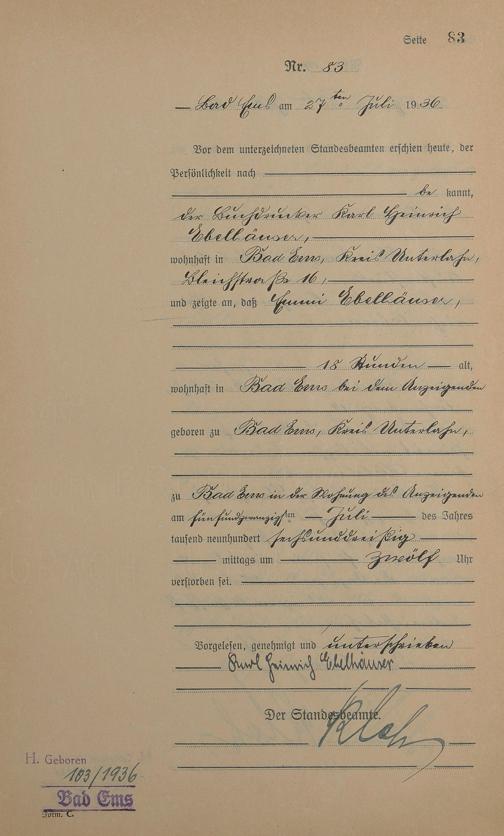 Seite 83
Nr. 83
Bad Ems am 27ten Juli 1936
Vor dem unterzeichneten Standesbeamten erschien heute, der
Persönlichkeit nach
be kannt,
der Buchdrucker Karl Heinrich
Ebelhäuser,
wohnhaft in Bad Ems, Kreis Unterlahn,
Bleichstraße 16,
und zeigte an, daß Emmi Ebelhäuser,
18 Stunden alt,
wohnhaft in Bad Ems bei dem Anzeigenden
geboren zu Bad Ems, Kreis Unterlahn,
zu Bad Ems in der Wohnung des Anzeigenden
am fünfundzwanzigsten Juli des Jahres
tausend neunhundert sechsunddreißig
mittags um zwölf Uhr
verstorben sei.
Vorgelesen, genehmigt und unterschrieben
Karl Heinrich Ebelhäuser
Der Standesbeamte.
H. Geboren
103/1936
Bad Ems
Form. C.